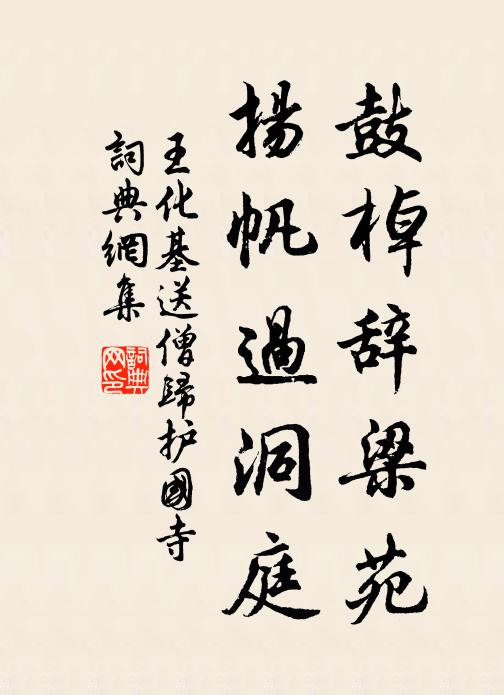 鼓棹辞梁苑
揚帆過洞庭
王化基送僧歸护國寺
詞典網集
詞典网印